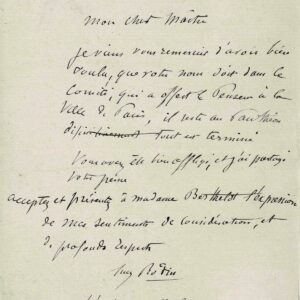 mon cher Maître
je viens vous remercier d'avoir bien
voulu, que votre nom soit dans le
Comité, qui a offert le Penseur à la
Ville de Paris, il reste au Panthéon
tout est terminé
Vous avez été bien affligé, et j'ai partagé
votre peine
acceptez et présentez à madame Berthelot l'expression
de mes sentiments de Considération, et
de profonds respects
Aug Rodin